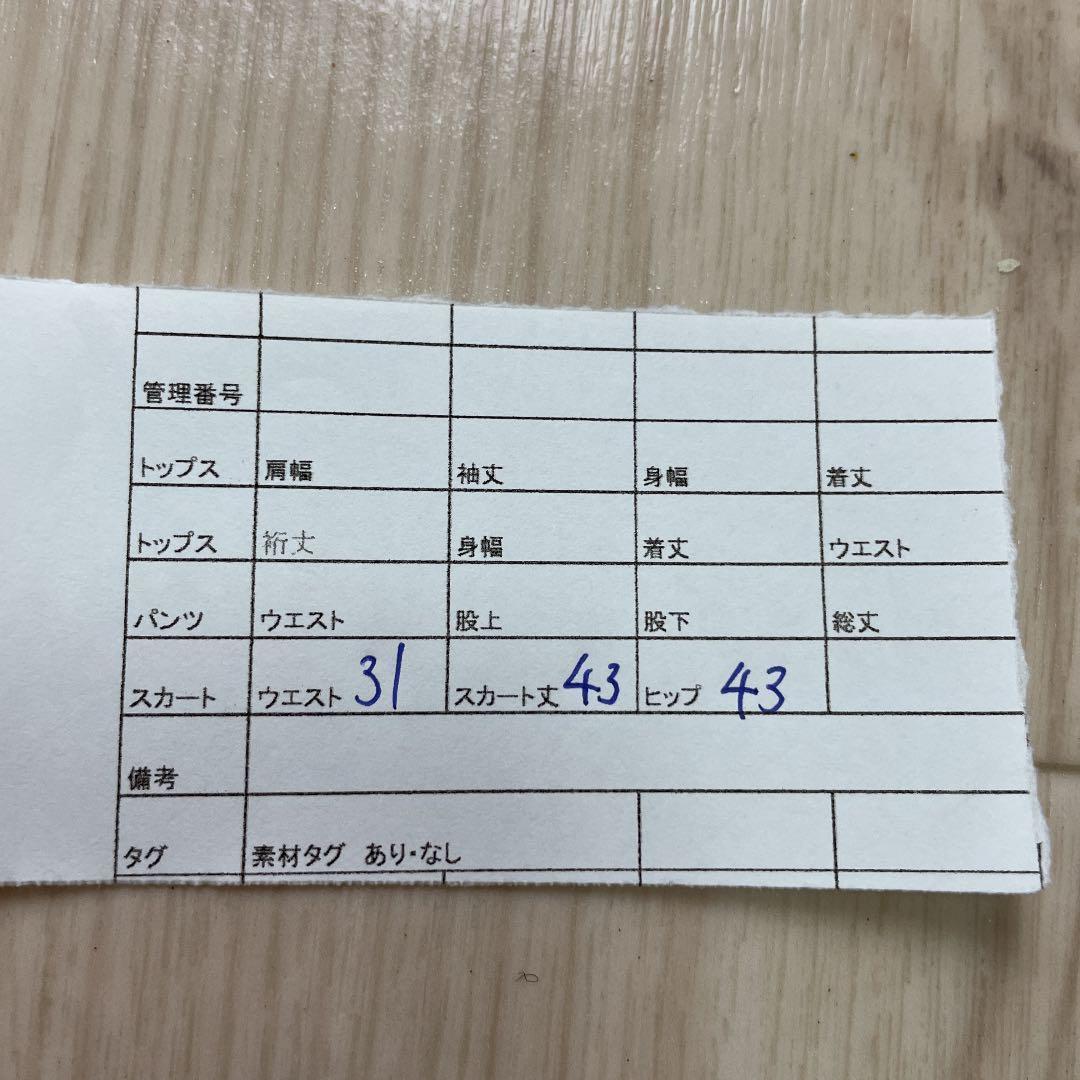 管理番号
トップス 肩幅 袖丈 身幅 着丈
トップス 裄丈 身幅 着丈 ウエスト
パンツ ウエスト 股上 股下 総丈
スカート ウエスト 31 スカート丈 43 ヒップ 43
備考
タグ 素材タグ あり・なし